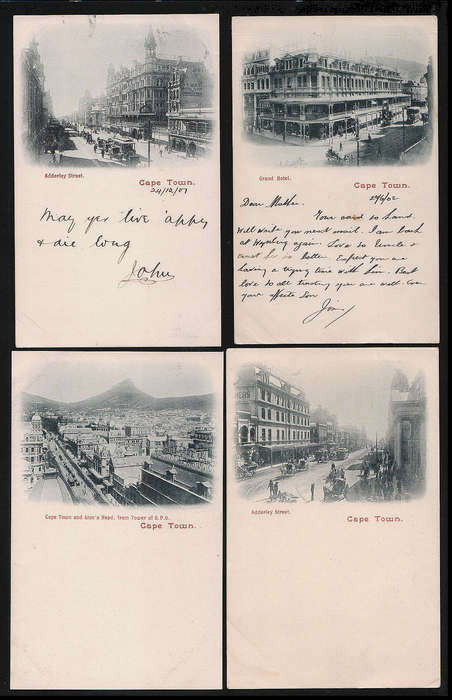 Adderley Street.
Cape Town.
24/12/01
May yes live 'appy
& die long
John
Grand Hotel.
Cape Town.
Dear Mother
Your card to hand.
Will write you next mail. I am back
at Wynberg again. Love to Uncle &
is better. Expect you are
having a trying time with him. Best
love to all trusting you are well. Ever
your affecte Son
Jim
Cape Town and Lion's Head, from Tower of G.P.O.
Cape Town.
Adderley Street.
Cape Town.